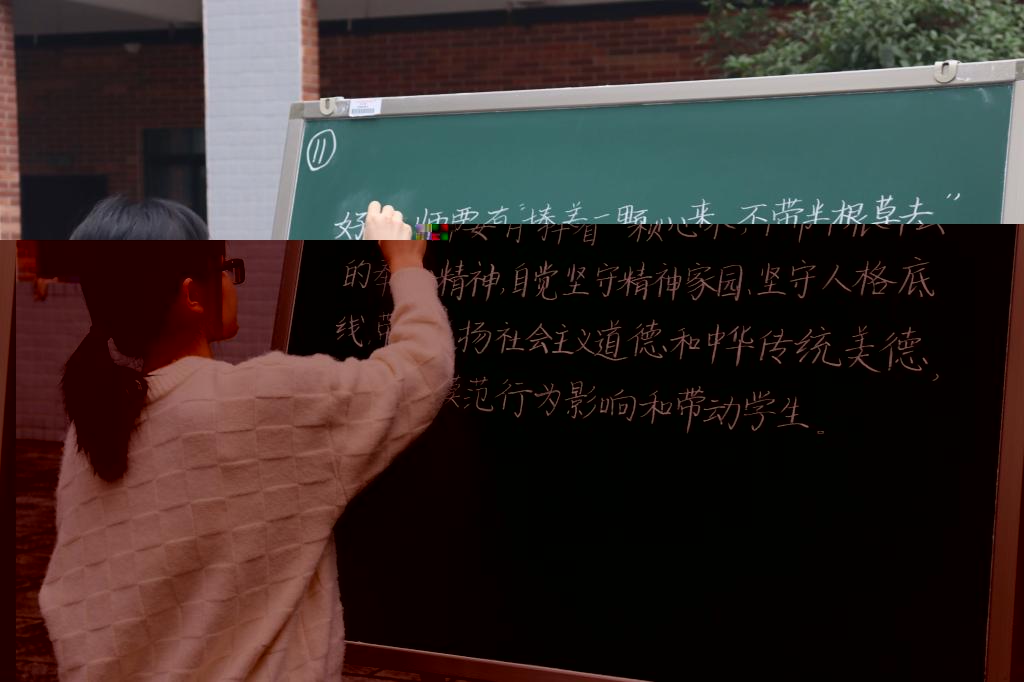 ⑪
好 师要有“捧着一颗心来,不带半根草去”
的 精神,自觉坚守精神家园、坚守人格底
线,带 扬社会主义道德和中华传统美德,
范行为影响和带动学生。